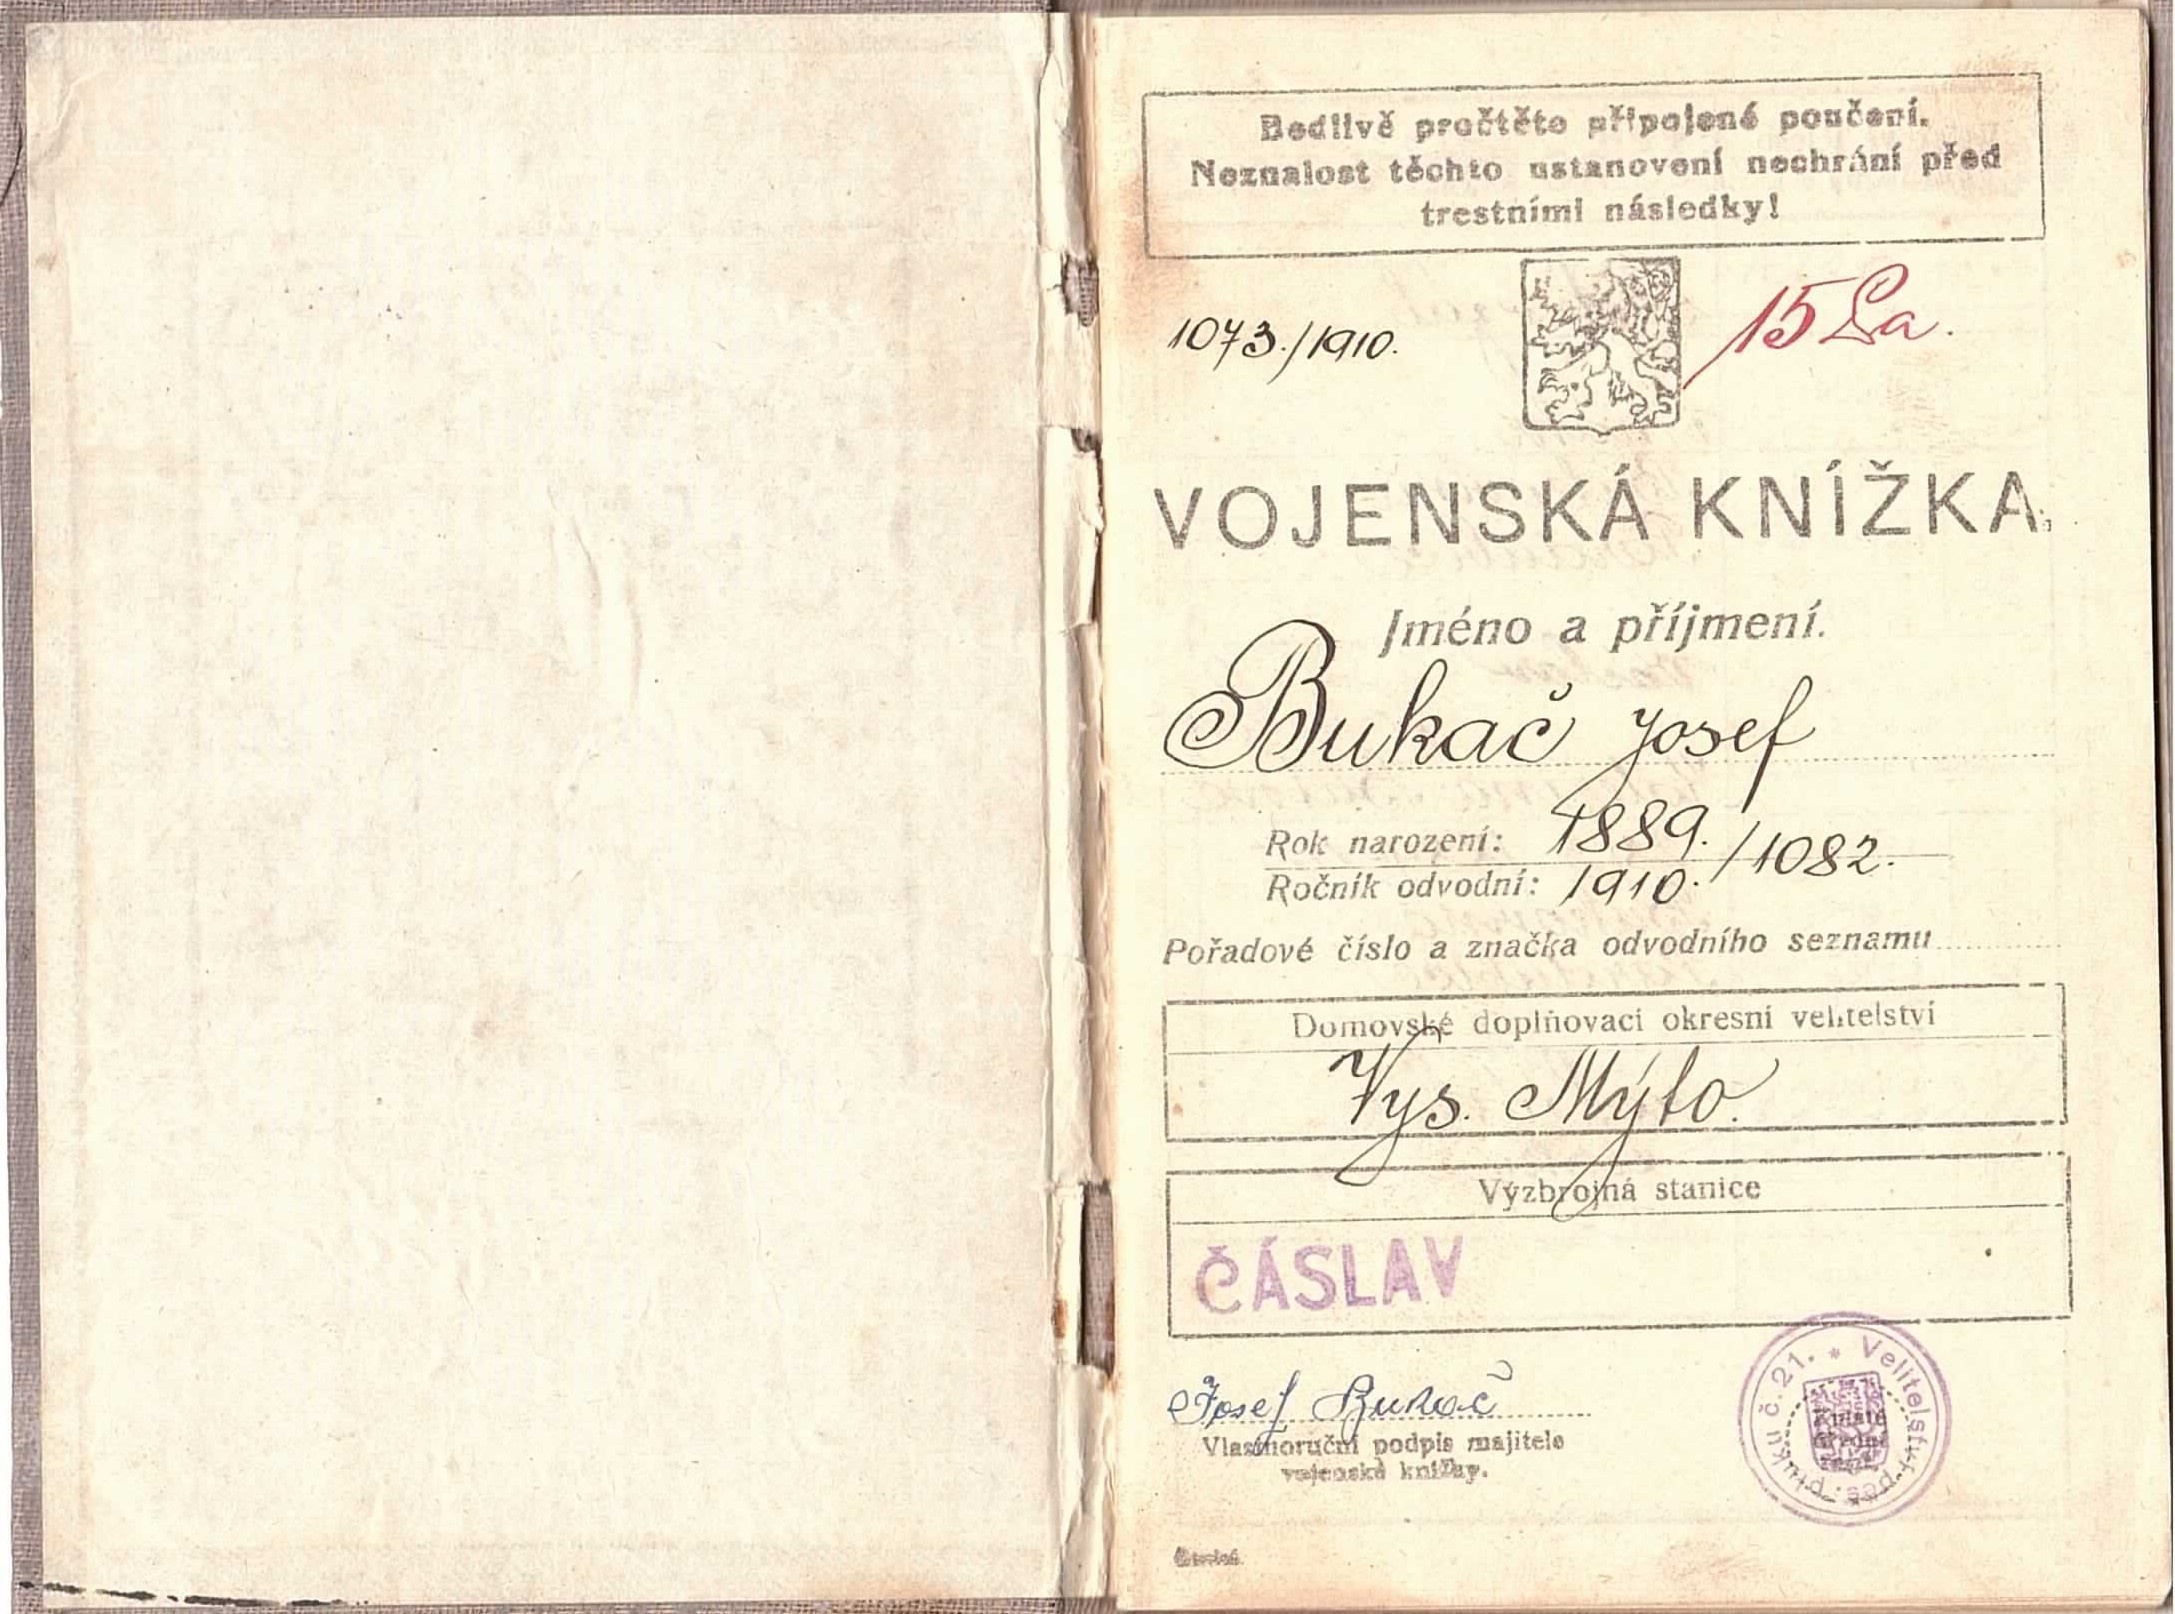 Bedlivě pročtěte připojené poučení.
Neznalost těchto ustanovení nechrání před
trestními následky!
1073./1910.
15 La.
VOJENSKÁ KNÍŽKA.
Jméno a příjmení.
Bukač Josef
Rok narození: 1889.
/1082.
Ročník odvodní: 1910.
Pořadové číslo a značka odvodního seznamu
Domovské doplňovací okresní velitelství
Vys. Mýto.
Výzbrojná stanice
ČÁSLAV
Josef Bukač
Vlastnoruční podpis majitele
vojenské knížky.
* Velitelství pěš. pluku č. 21.
Kulaté
úřední